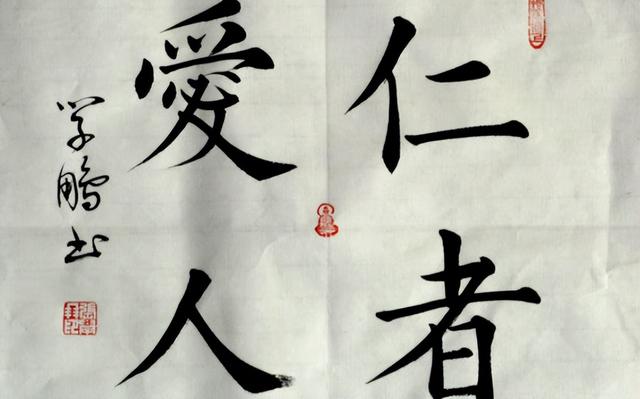 仁者
愛人
学鹏书